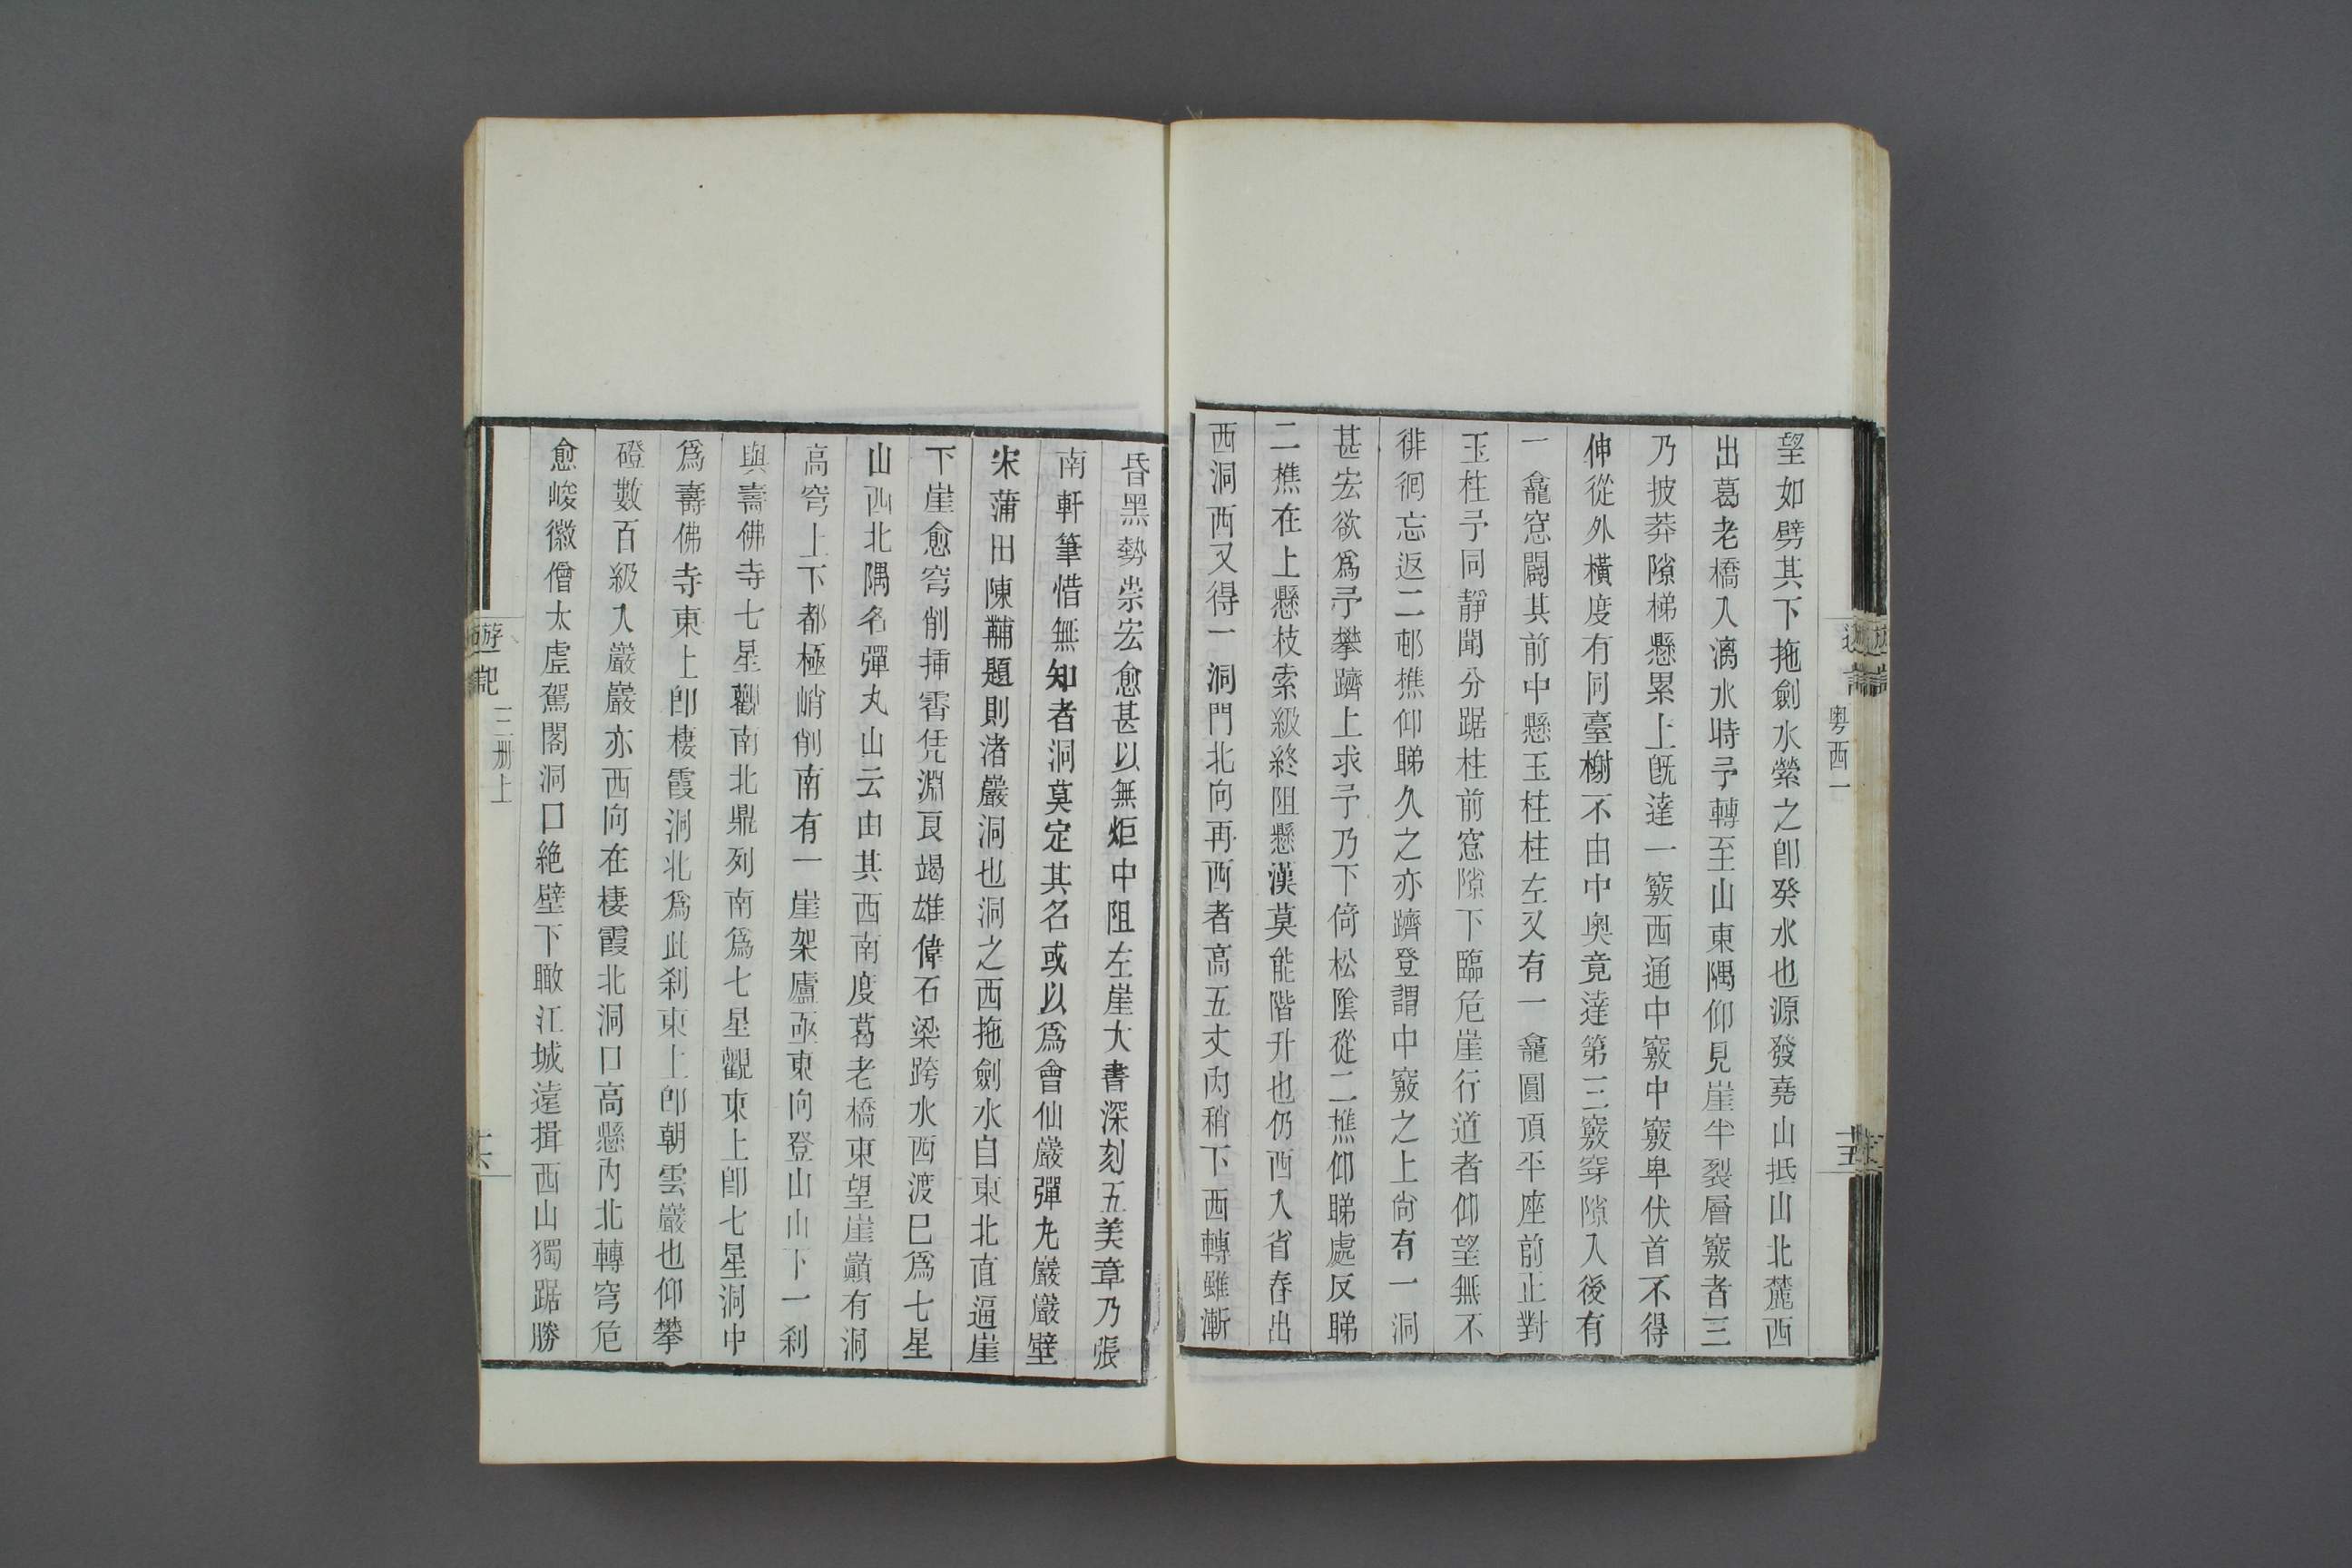 粤西一
望如劈其下拖劍水縈之卽癸水也源發堯山抵山北麓西
出葛老橋入漓水時予轉至山東隅仰見崖半裂層竅者三
乃披莽隙梯懸累上旣達一竅西通中竅中竅卑伏首不得
伸從外橫度有同臺榭不由中奧竟達第三竅穿隙入後有
一龕窓闢其前中懸玉柱柱左又有一龕圓頂平座前正對
玉柱予同靜聞分踞柱前窓隙下臨危崖行道者仰望無不
徘徊忘返二邨樵仰睇久之亦躋登謂中竅之上尙有一洞
甚宏欲爲予攀躋上求予乃下倚松陰從二樵仰睇處反睇
二樵在上懸枝索級終阻懸漢莫能階升也仍西入省春出
西洞西又得一洞門北向再西者高五丈內稍下西轉雖漸
昏黑勢崇宏愈甚以無炬中阻左崖大書深刻五美章乃張
南軒筆惜無知者洞莫定其名或以爲會仙巖彈丸巖巖壁
宋蒲田陳黼題則渚巖洞也洞之西拖劍水自東北直逼崖
下崖愈穹削揷霄凭淵良竭雄偉石梁跨水西渡巳爲七星
山西北隅名彈丸山云由其西南度葛老橋東望崖巔有洞
高穹上下都極峭削南有一崖架廬亟東向登山山下一刹
與壽佛寺七星觀南北鼎列南爲七星觀東上卽七星洞中
爲壽佛寺東上卽棲霞洞北爲此刹東上卽朝雲巖也仰攀
磴數百級入巖巖亦西向在棲霞北洞口高懸內北轉穹危
愈峻徽僧太虛駕閣洞口絶壁下瞰江城遠揖西山獨踞勝
遊記
三册上